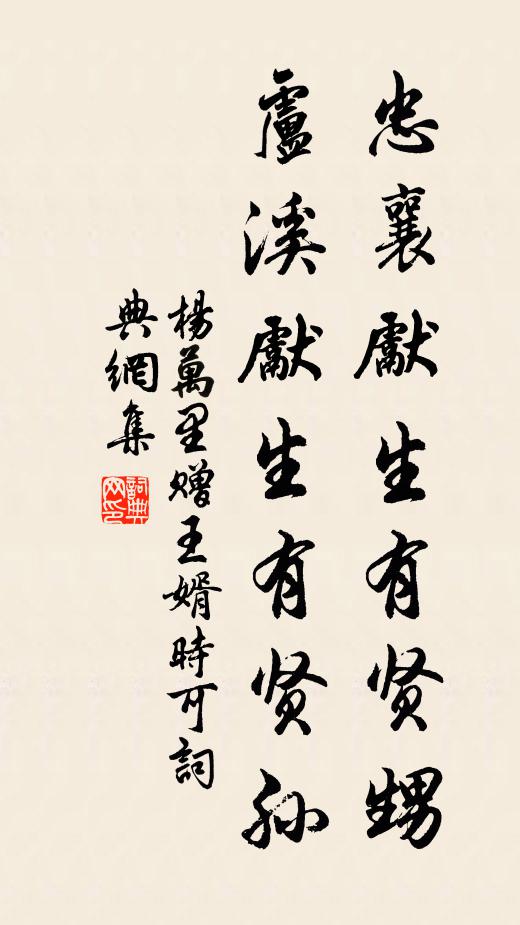 忠襄獻生有贤甥
盧溪獻生有贤孙
楊萬里赠王婿時可詞
典網集
詞典网印